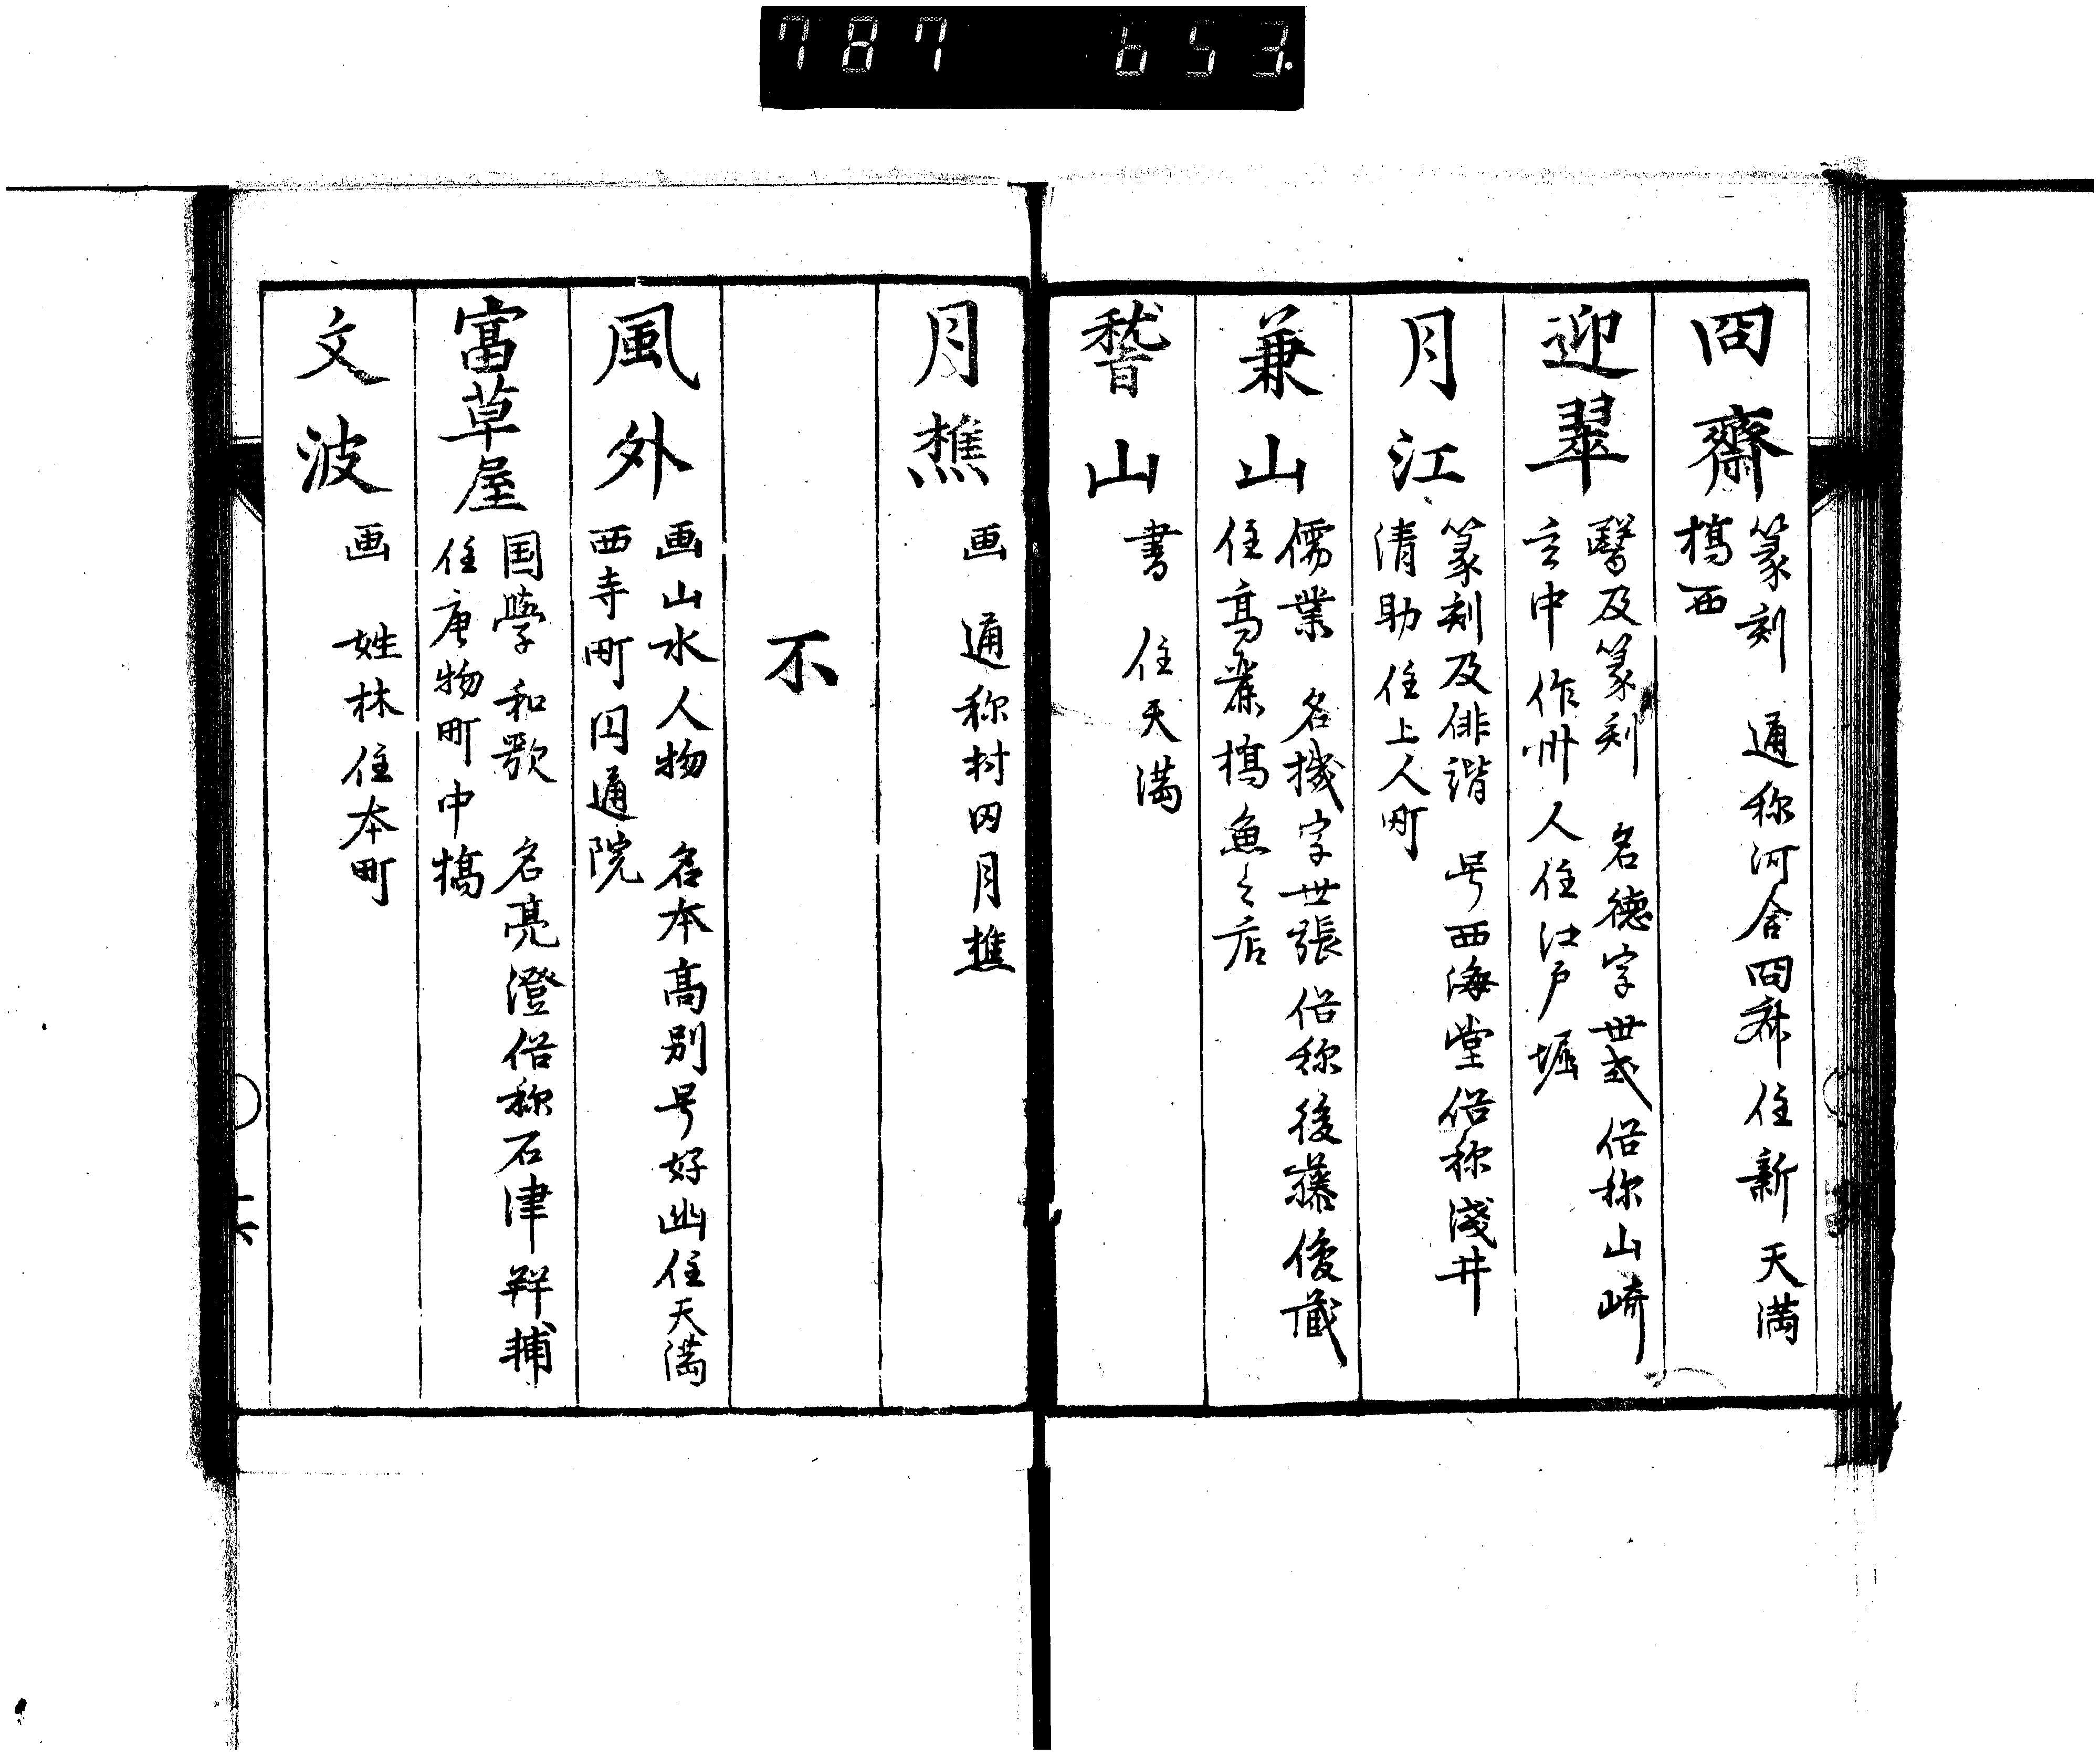 787 653.
冏齋
篆刻 通称河合冏斎住新天満
橋西
迎翠
醫及篆刻 名德字世弌俗称山崎
玄中作州人住江戸堀
月江
篆刻及俳諧 号西海堂俗称淺井
清助住上人町
兼山
儒業 名機字世張俗称後藤俊藏
住高麗橋魚之店
嵆山
書 住天満
月樵
画 通称村田月樵
不
風外
画山水人物 名本高別号好幽住天満
西寺町円通院
富草屋
国學和歌 名亮澄俗称石津
住唐物町中橋
文波
画 姓林住本町